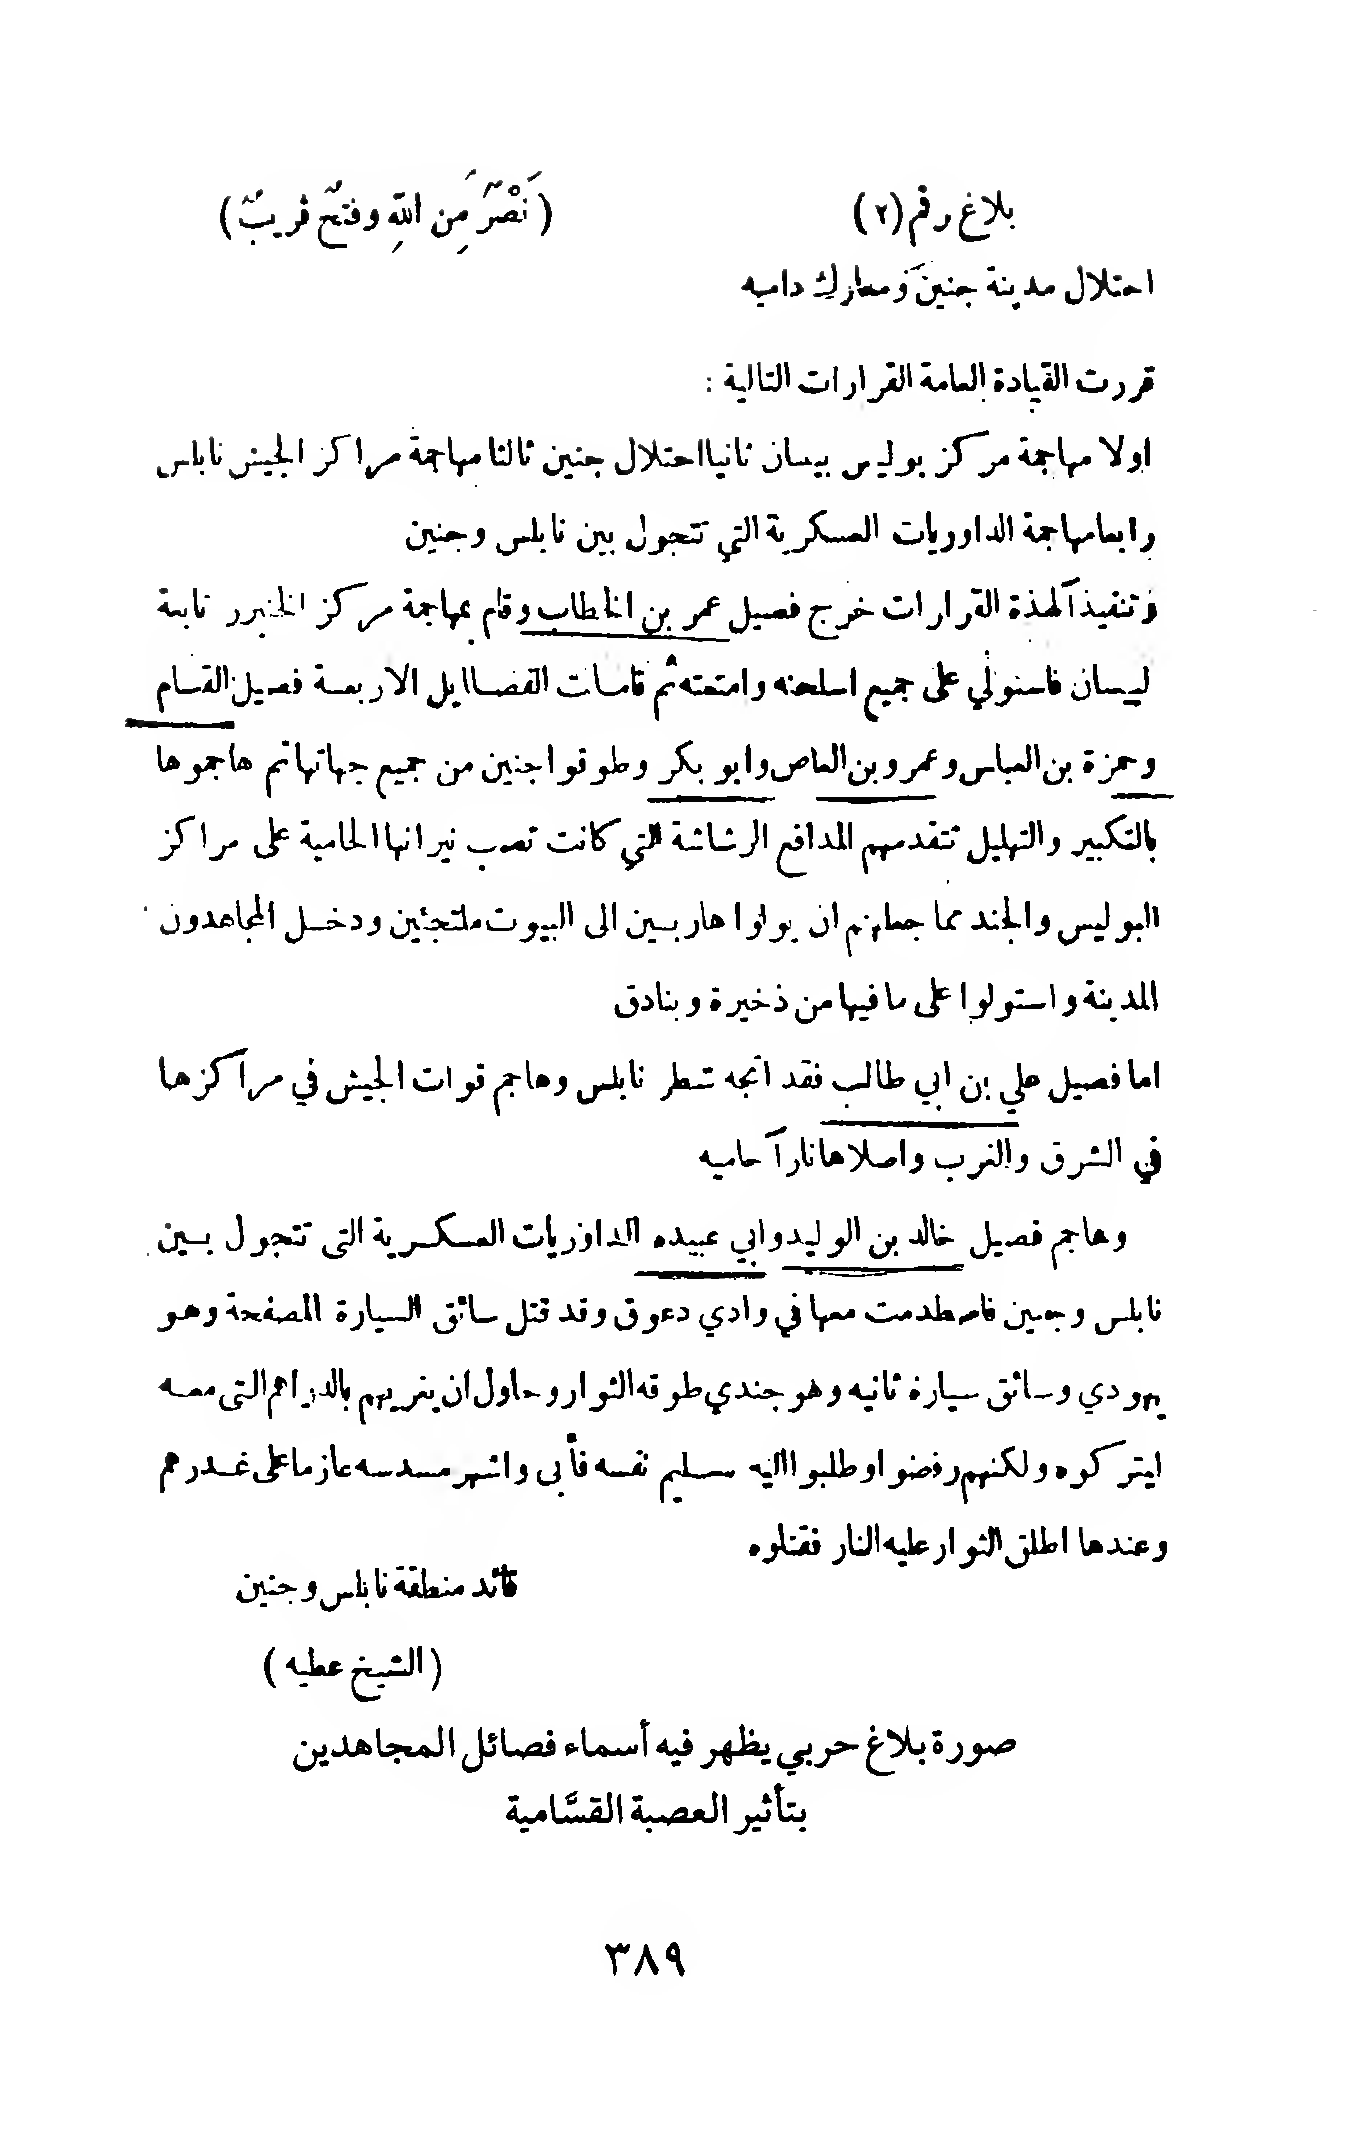 بلاغ رقم (٢) (نَصْرٌ مِن اللهِ وفتحٌ قريبٌ)
احتلال مدينة جنين ومعارك داميه
قررت القيادة العامة القرارات التالية :
اولا مهاجمة مركز بوليس بيسان ثانيا احتلال جنين ثالثا مهاجمة مراكز الجيش نابلس
رابعا مهاجمة الداوريات العسكرية التي تتجول بين نابلس وجنين
وتنفيذآ لهذة القرارات خرج فصيل عمر بن الخطاب وقام بمهاجمة مركز تابعة
لبيسان فاستولي على جميع اسلحته وامتعته ثم قامات الفصاايل الاربعة فصيل القسام
وحمزة بن العباس وعمرو بن العاص وابو بكر وطوقوا جنين من جميع جهاتها ثم هاجموها
بالتكبير والتهليل تتقدمهم المدافع الرشاشة التي كانت تصب نيرانها الحامية على مراكز
البوليس والجند مما جعلهم ان يولوا هاربين الى البيوت ملتجئين ودخل المجاهدون
المدينة واستولوا على ما فيها من ذخيرة وبنادق
اما فصيل علي بن ابي طالب فقد اتجه شطر نابلس وهاجم قوات الجيش في مراكزها
في الشرق والغرب واصلاها نارآ حاميه
وهاجم فصيل خالد بن الوليد وابي عبيده الداوريات العسكرية التى تتجول بين
نابلس وجنين فاصطدمت معها في وادي دعوق وقد قتل سائق السيارة المصفحة وهو
يهودي وسائق سيارة ثانيه وهو جندي طوقه الثوار وحاول ان يغريهم بالدراهم التى معه
ليتركوه ولكنهم رفضوا وطلبوا اليه تسليم نفسه فأبى واشهر مسدسه عازما على غدرهم
وعندها اطلق الثوار عليه النار فقتلوه
قائد منطقة نابلس وجنين
(الشيخ عطيه)
صورة بلاغ حربي يظهر فيه أسماء فصائل المجاهدين
بتأثير العصبة القسَّامية
٣٨٩